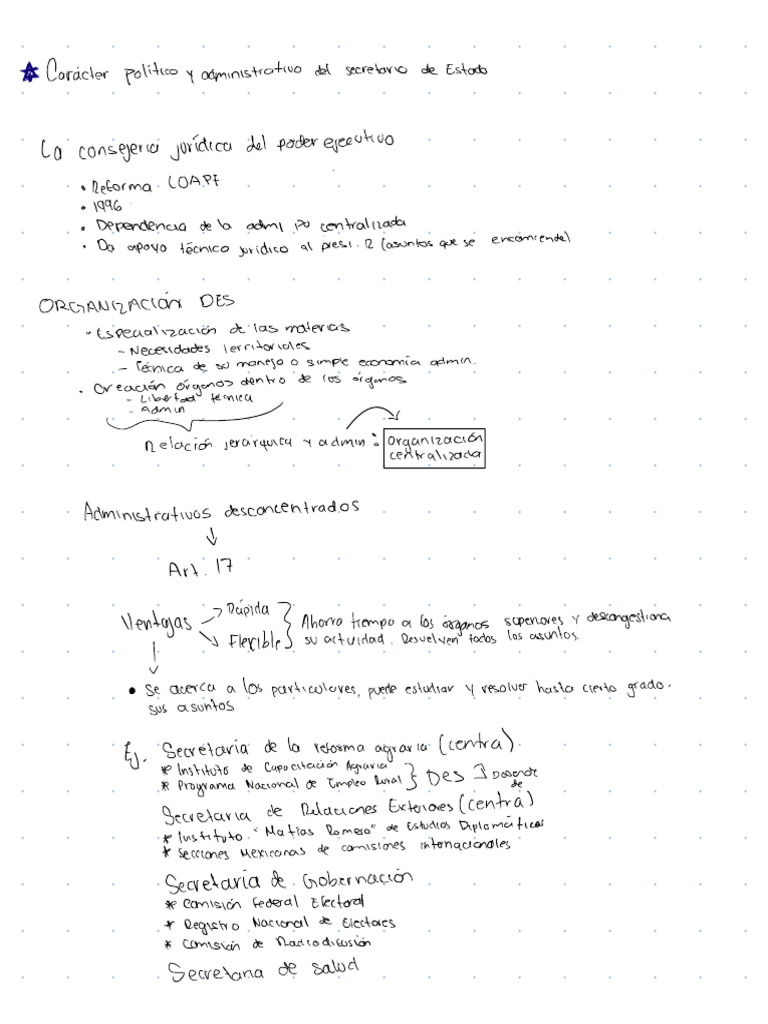 Carácter político y administrativo del secretario de Estado
La consejería jurídica del poder ejecutivo
• Reforma LOAPF
• 1996
• Dependencia de la admi pú centralizada
• Da apoyo técnico jurídico al presi. R (asuntos que se encomiende)
ORGANIZACIÓN DES
- Especialización de las materias
- Necesidades territoriales
- Técnica de su manejo o simple economía admin.
• Creación órganos dentro de los órganos
- Libertad técnica
- Admin
Relación jerárquica y admin: Organización centralizada
Administrativos desconcentrados
Art. 17
Ventajas
Rápida
Flexible
Ahorra tiempo a los órganos superiores y descongestiona
su actividad. Resuelven todos los asuntos
• Se acerca a los particulares, puede estudiar y resolver hasta cierto grado.
sus asuntos
Ej. Secretaría de la reforma agraria (centra).
* Instituto de Capacitación Agraria
* Programa Nacional de Empleo Rural
DES
de
Secretaria de Relaciones Exteriores (centra)
* Instituto "Matías Romero" de Estudios Diplomáticos
* Secciones Mexicanas de comisiones internacionales
Secretaría de Gobernación
* Comisión Federal Electoral
* Registro Nacional de Electores
* Comisión de Radiodifusión
Secretaria de salud